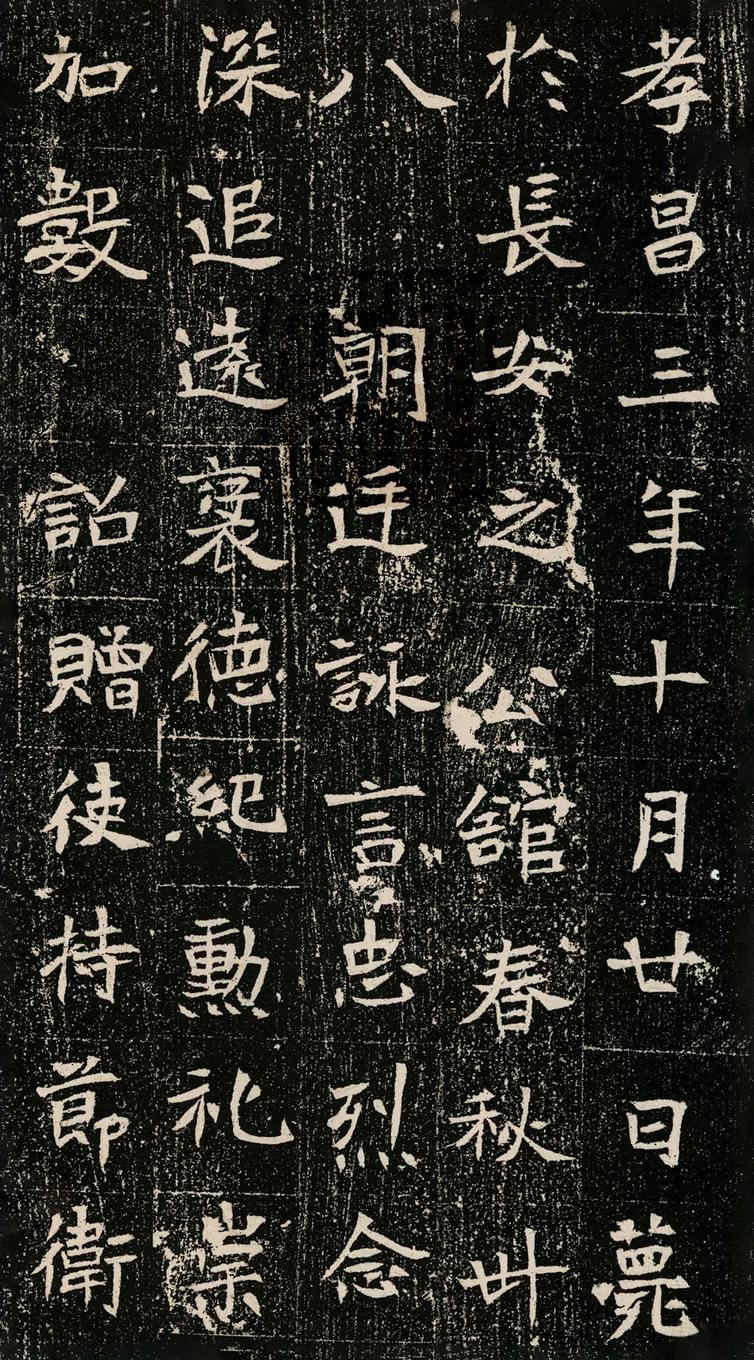 孝昌三年十月廿日薨
於長安之公館春秋卌
八朝廷詠言忠烈念
深追遠襃德紀勳礼崇
加數詔贈使持節衛